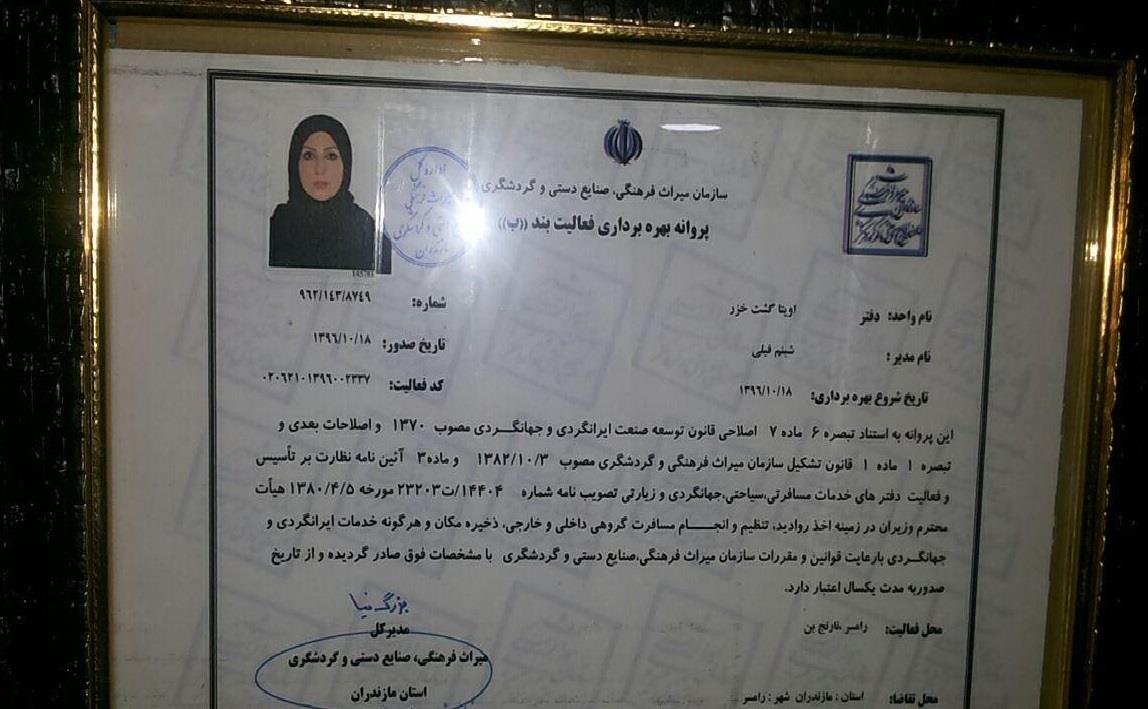 سازمان میراث فرهنگی، صنایع دستی و گردشگری
پروانه بهره برداری فعالیت بند ((ب))
اداره کل
میراث فرهنگی
دستی و گردشگری
مازندران
145781
شماره: ۹۶۲/۱۴۳/۸۷۴۹
تاریخ صدور: ۱۳۹۶/۱۰/۱۸
کد فعالیت: ۰۲۰۶۲۱۰۱۳۹۶۰۰۲۳۳۷
نام واحد: دفتر اویتا گشت خزر
نام مدیر: شبنم فیلی
تاریخ شروع بهره برداری: ۱۳۹۶/۱۰/۱۸
این پروانه به استناد تبصره ۶ ماده ۷ اصلاحی قانون توسعه صنعت ایرانگردی و جهانگـــردی مصوب ۱۳۷۰ و اصلاحات بعدی و
تبصره ۱ ماده ۱ قانون تشکیل سازمان میراث فرهنگی و گردشگری مصوب ۱۳۸۲/۱۰/۳ و ماده۳ آئین نامه نظارت بر تأسیس
و فعالیت دفتر های خدمات مسافرتی،سیاحتی،جهانگردی و زیارتی تصویب نامه شماره ۱۴۴۰۴/ت۲۳۲۰۳ مورخه ۱۳۸۰/۴/۵ هیأت
محترم وزیران در زمینه اخذ روادید، تنظیم و انجـــــام مسافرت گروهی داخلی و خارجی، ذخیره مکان و هرگونه خدمات ایرانگردی و
جهانگـــردی بارعایت قوانین و مقررات سازمان میراث فرهنگی،صنایع دستی و گردشگری با مشخصات فوق صادر گردیده و از تاریخ
صدوربه مدت یکسال اعتبار دارد.
محل فعالیت: رامسر،نارنج بن
محل تقاضا: استان : مازندران شهر : رامسر
بزرگ نیا
مدیرکل
میراث فرهنگی، صنایع دستی و گردشگری
استان مازندران